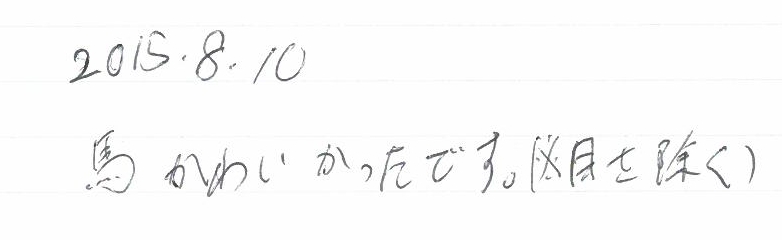 2015.8.10
馬かわいかったです。(※目を除く)